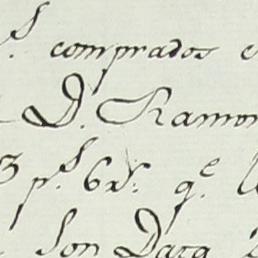 p.s comprados e
D. Ramon
3 p.s 6 r.s q.e l
son Para